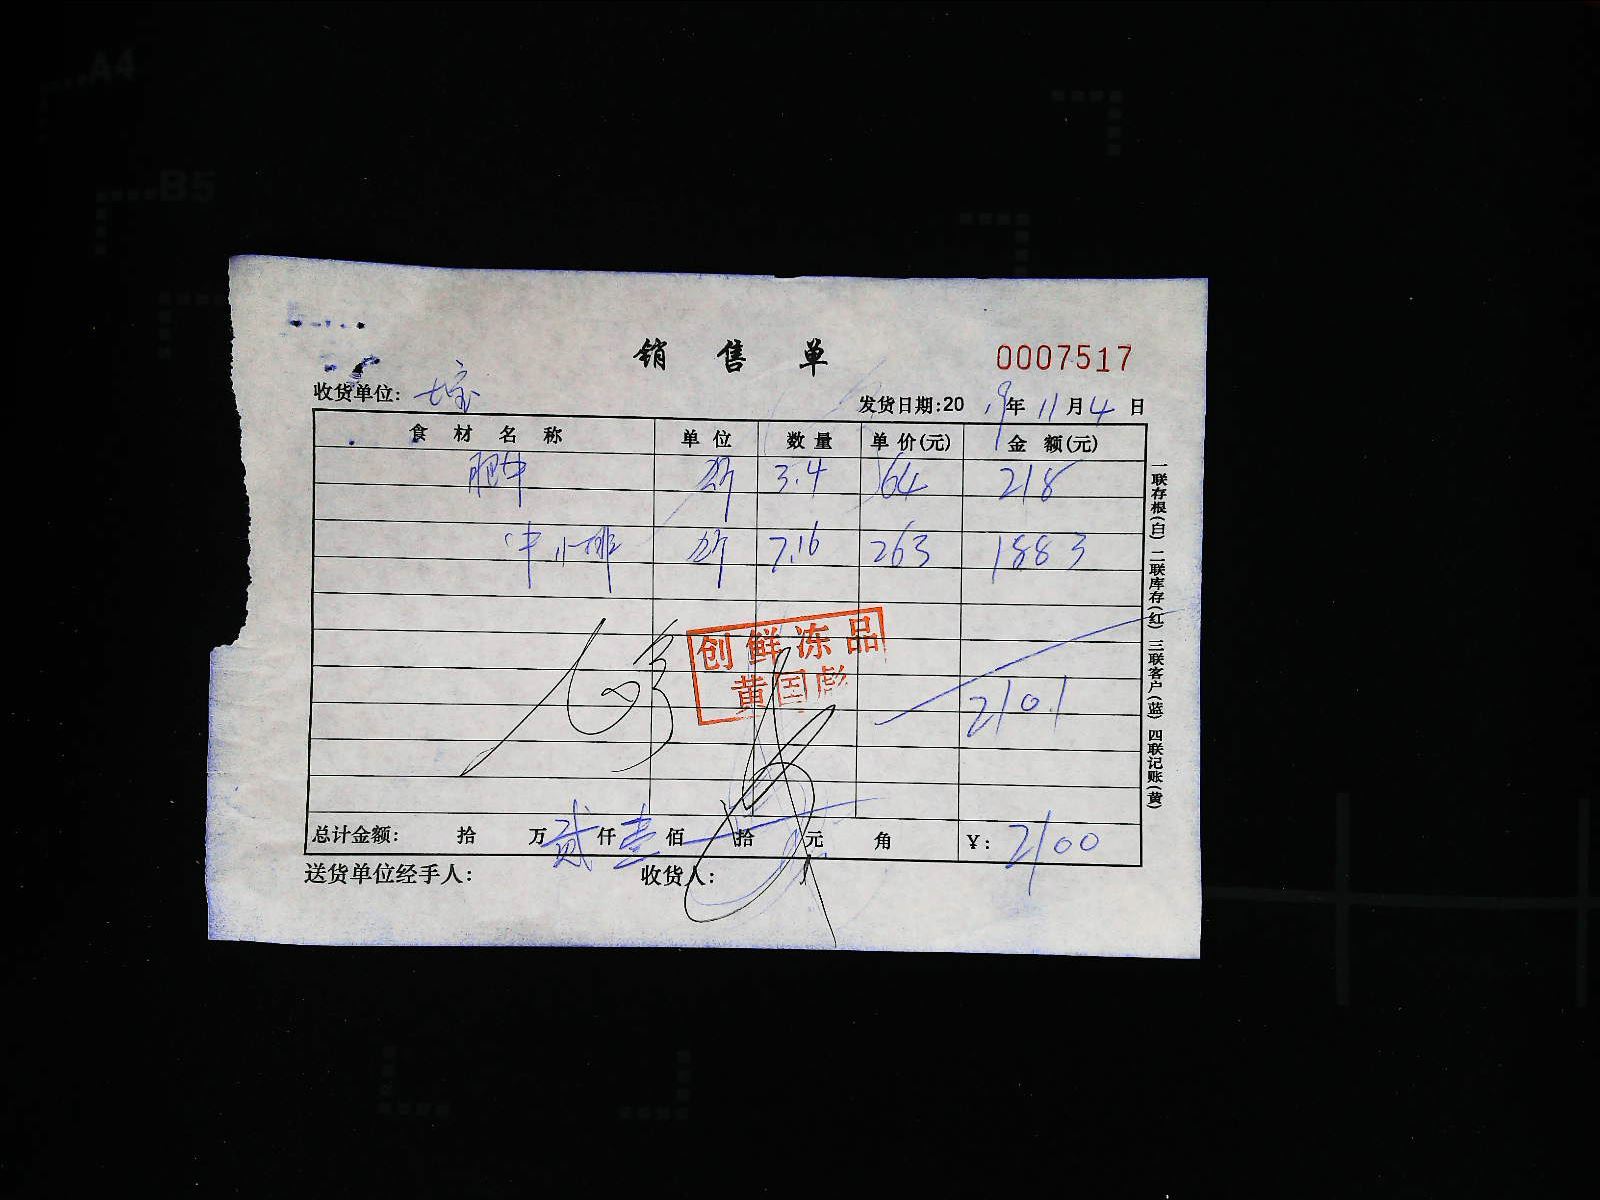 A4
B5
销售单 0007517
收货单位: 七宝 发货日期:2019年11月4日
食材名称 单位 数量 单价(元) 金额(元)
肥牛 斤 3.4 64 218
牛小排 斤 7.16 263 1883
创鲜冻品
黄国彪
2101
总计金额: 拾 万 贰 仟 壹 佰 拾 元 角 ¥: 2100
送货单位经手人: 收货人:
一联存根(白) 二联库存(红) 三联客户(蓝) 四联记账(黄)